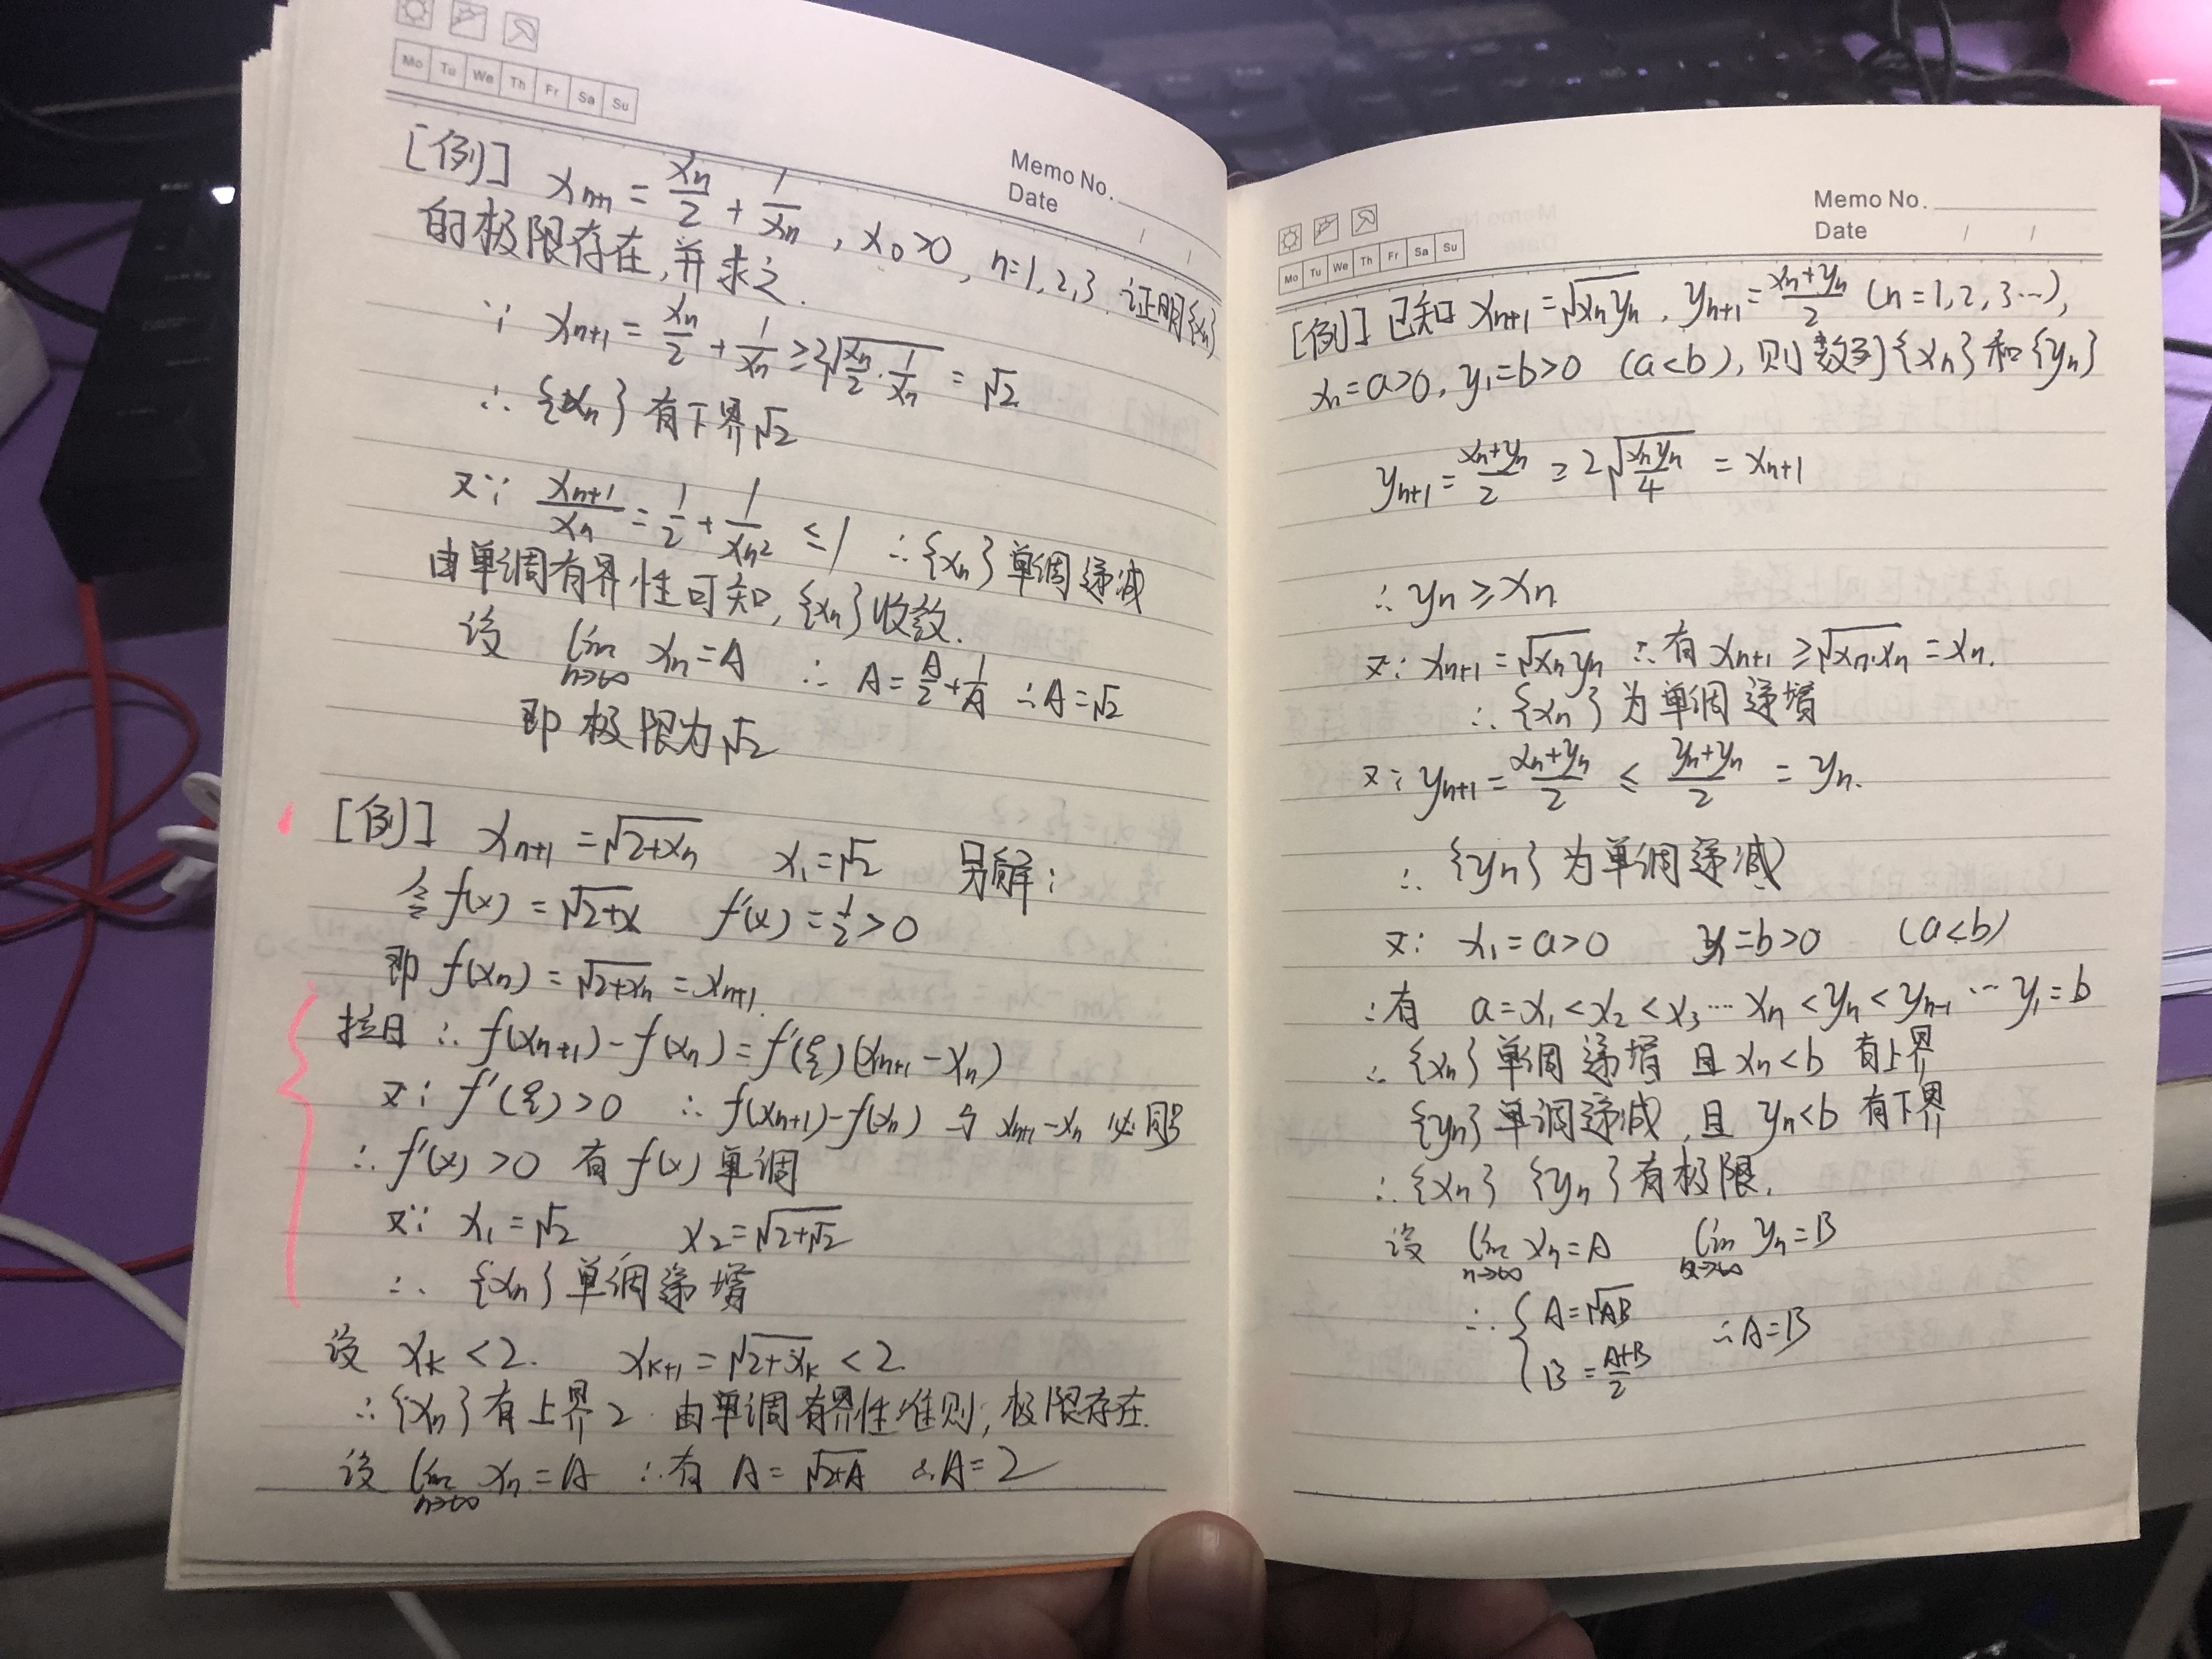 Mo Tu We Th Fr Sa Su
Memo No.
Date / /
[例] xₙ₊₁ = xₙ/2 + 1/xₙ , x₀>0, n=1,2,3. 证明{xₙ}
的极限存在,并求之.
∵ xₙ₊₁ = xₙ/2 + 1/xₙ ≥ 2√(xₙ/2 · 1/xₙ) = √2
∴ {xₙ} 有下界√2
又∵ xₙ₊₁/xₙ = 1/2 + 1/xₙ² ≤ 1 ∴{xₙ} 单调递减
由单调有界性可知, {xₙ} 收敛.
设 lim n→∞ xₙ = A ∴ A = A/2 + 1/A ∴A=√2
即 极限为√2
[例] xₙ₊₁ = √(2+xₙ) x₁=√2 另解:
令 f(x) = √(2+x) f'(x) = 1/2 > 0
即 f(xₙ) = √(2+xₙ) = xₙ₊₁.
拉日 ∴ f(xₙ₊₁) - f(xₙ) = f'(ξ)(xₙ₊₁ - xₙ)
又∵ f'(ξ) > 0 ∴ f(xₙ₊₁) - f(xₙ) 与 xₙ₊₁ - xₙ 必同号
∴ f'(x) > 0 有 f(x) 单调
又∵ x₁ = √2 x₂ = √(2+√2)
∴ {xₙ} 单调递增
设 xₖ < 2. xₖ₊₁ = √(2+xₖ) < 2.
∴ {xₙ} 有上界 2. 由单调有界性准则, 极限存在.
设 lim n→∞ xₙ = A ∴有 A = √(2+A) ∴A = 2
Mo Tu We Th Fr Sa Su
Memo No.
Date / /
[例] 已知 xₙ₊₁ = √(xₙyₙ) , yₙ₊₁ = (xₙ+yₙ)/2 (n=1,2,3…),
xₙ=a>0, y₁=b>0 (a<b), 则数列{xₙ}和{yₙ}
yₙ₊₁ = (xₙ+yₙ)/2 ≥ 2√(xₙyₙ/4) = xₙ₊₁
∴ yₙ ≥ xₙ
又∵ xₙ₊₁ = √(xₙyₙ) ∴有 xₙ₊₁ ≥ √(xₙ·xₙ) = xₙ.
∴ {xₙ} 为单调递增
又∵ yₙ₊₁ = (xₙ+yₙ)/2 ≤ (yₙ+yₙ)/2 = yₙ.
∴ {yₙ} 为单调递减
又∵ x₁ = a > 0 y₁ = b > 0 (a<b)
∴有 a = x₁ < x₂ < x₃ … xₙ < yₙ < yₙ₋₁ … y₁ = b
∴ {xₙ} 单调递增 且 xₙ < b 有上界
{yₙ} 单调递减, 且 yₙ < b 有下界
∴ {xₙ} {yₙ} 有极限.
设 lim n→∞ xₙ = A lim n→∞ yₙ = B
∴ { A = √(AB) ∴A=B
B = (A+B)/2